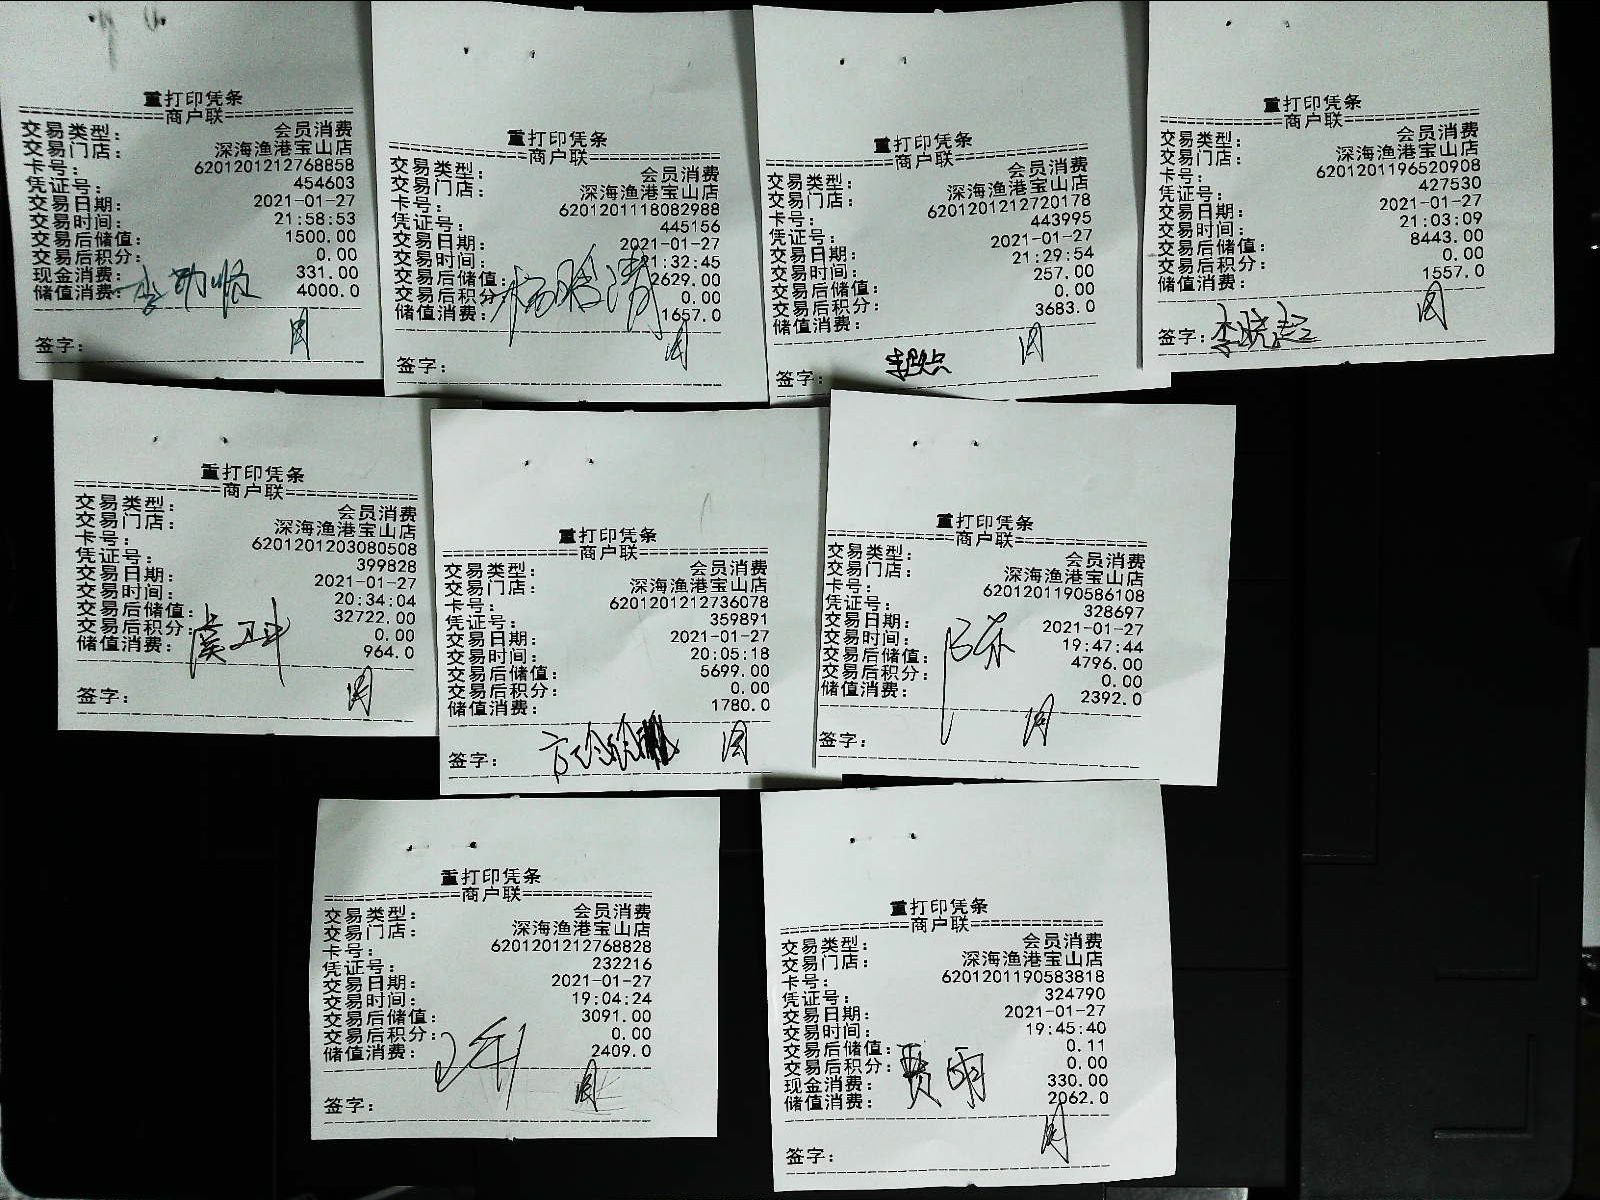 重打印凭条
商户联
交易类型： 会员消费
交易门店： 深海渔港宝山店
卡号： 6201201212768858
凭证号： 454603
交易日期： 2021-01-27
交易时间： 21:58:53
交易后储值： 1500.00
交易后积分： 0.00
现金消费： 331.00
储值消费： 4000.0
签字：
重打印凭条
商户联
交易类型： 会员消费
交易门店： 深海渔港宝山店
卡号： 6201201118082988
凭证号： 445156
交易日期： 2021-01-27
交易时间： 21:32:45
交易后储值： 2629.00
交易后积分 0.00
储值消费： 1657.0
签字：
重打印凭条
商户联
交易类型： 会员消费
交易门店： 深海渔港宝山店
卡号： 6201201212720178
凭证号： 443995
交易日期： 2021-01-27
交易时间： 21:29:54
交易后储值： 257.00
交易后积分： 0.00
储值消费： 3683.0
签字：
重打印凭条
商户联
交易类型： 会员消费
交易门店： 深海渔港宝山店
卡号： 6201201196520908
凭证号： 427530
交易日期： 2021-01-27
交易时间： 21:03:09
交易后储值： 8443.00
交易后积分： 0.00
储值消费： 1557.0
签字：
重打印凭条
商户联
交易类型： 会员消费
交易门店： 深海渔港宝山店
卡号： 6201201203080508
凭证号： 399828
交易日期： 2021-01-27
交易时间： 20:34:04
交易后储值： 32722.00
交易后积分： 0.00
储值消费： 964.0
签字：
重打印凭条
商户联
交易类型： 会员消费
交易门店： 深海渔港宝山店
卡号： 6201201212736078
凭证号： 359891
交易日期： 2021-01-27
交易时间： 20:05:18
交易后储值： 5699.00
交易后积分： 0.00
储值消费： 1780.0
签字：
重打印凭条
商户联
交易类型： 会员消费
交易门店： 深海渔港宝山店
卡号： 6201201190586108
凭证号： 328697
交易日期： 2021-01-27
交易时间： 19:47:44
交易后储值： 4796.00
交易后积分： 0.00
储值消费： 2392.0
签字：
重打印凭条
商户联
交易类型： 会员消费
交易门店： 深海渔港宝山店
卡号： 6201201212768828
凭证号： 232216
交易日期： 2021-01-27
交易时间： 19:04:24
交易后储值： 3091.00
交易后积分： 0.00
储值消费： 2409.0
签字：
重打印凭条
商户联
交易类型： 会员消费
交易门店： 深海渔港宝山店
卡号： 6201201190583818
凭证号： 324790
交易日期： 2021-01-27
交易时间： 19:45:40
交易后储值： 0.11
交易后积分： 0.00
现金消费： 330.00
储值消费： 2062.0
贾雨
签字：